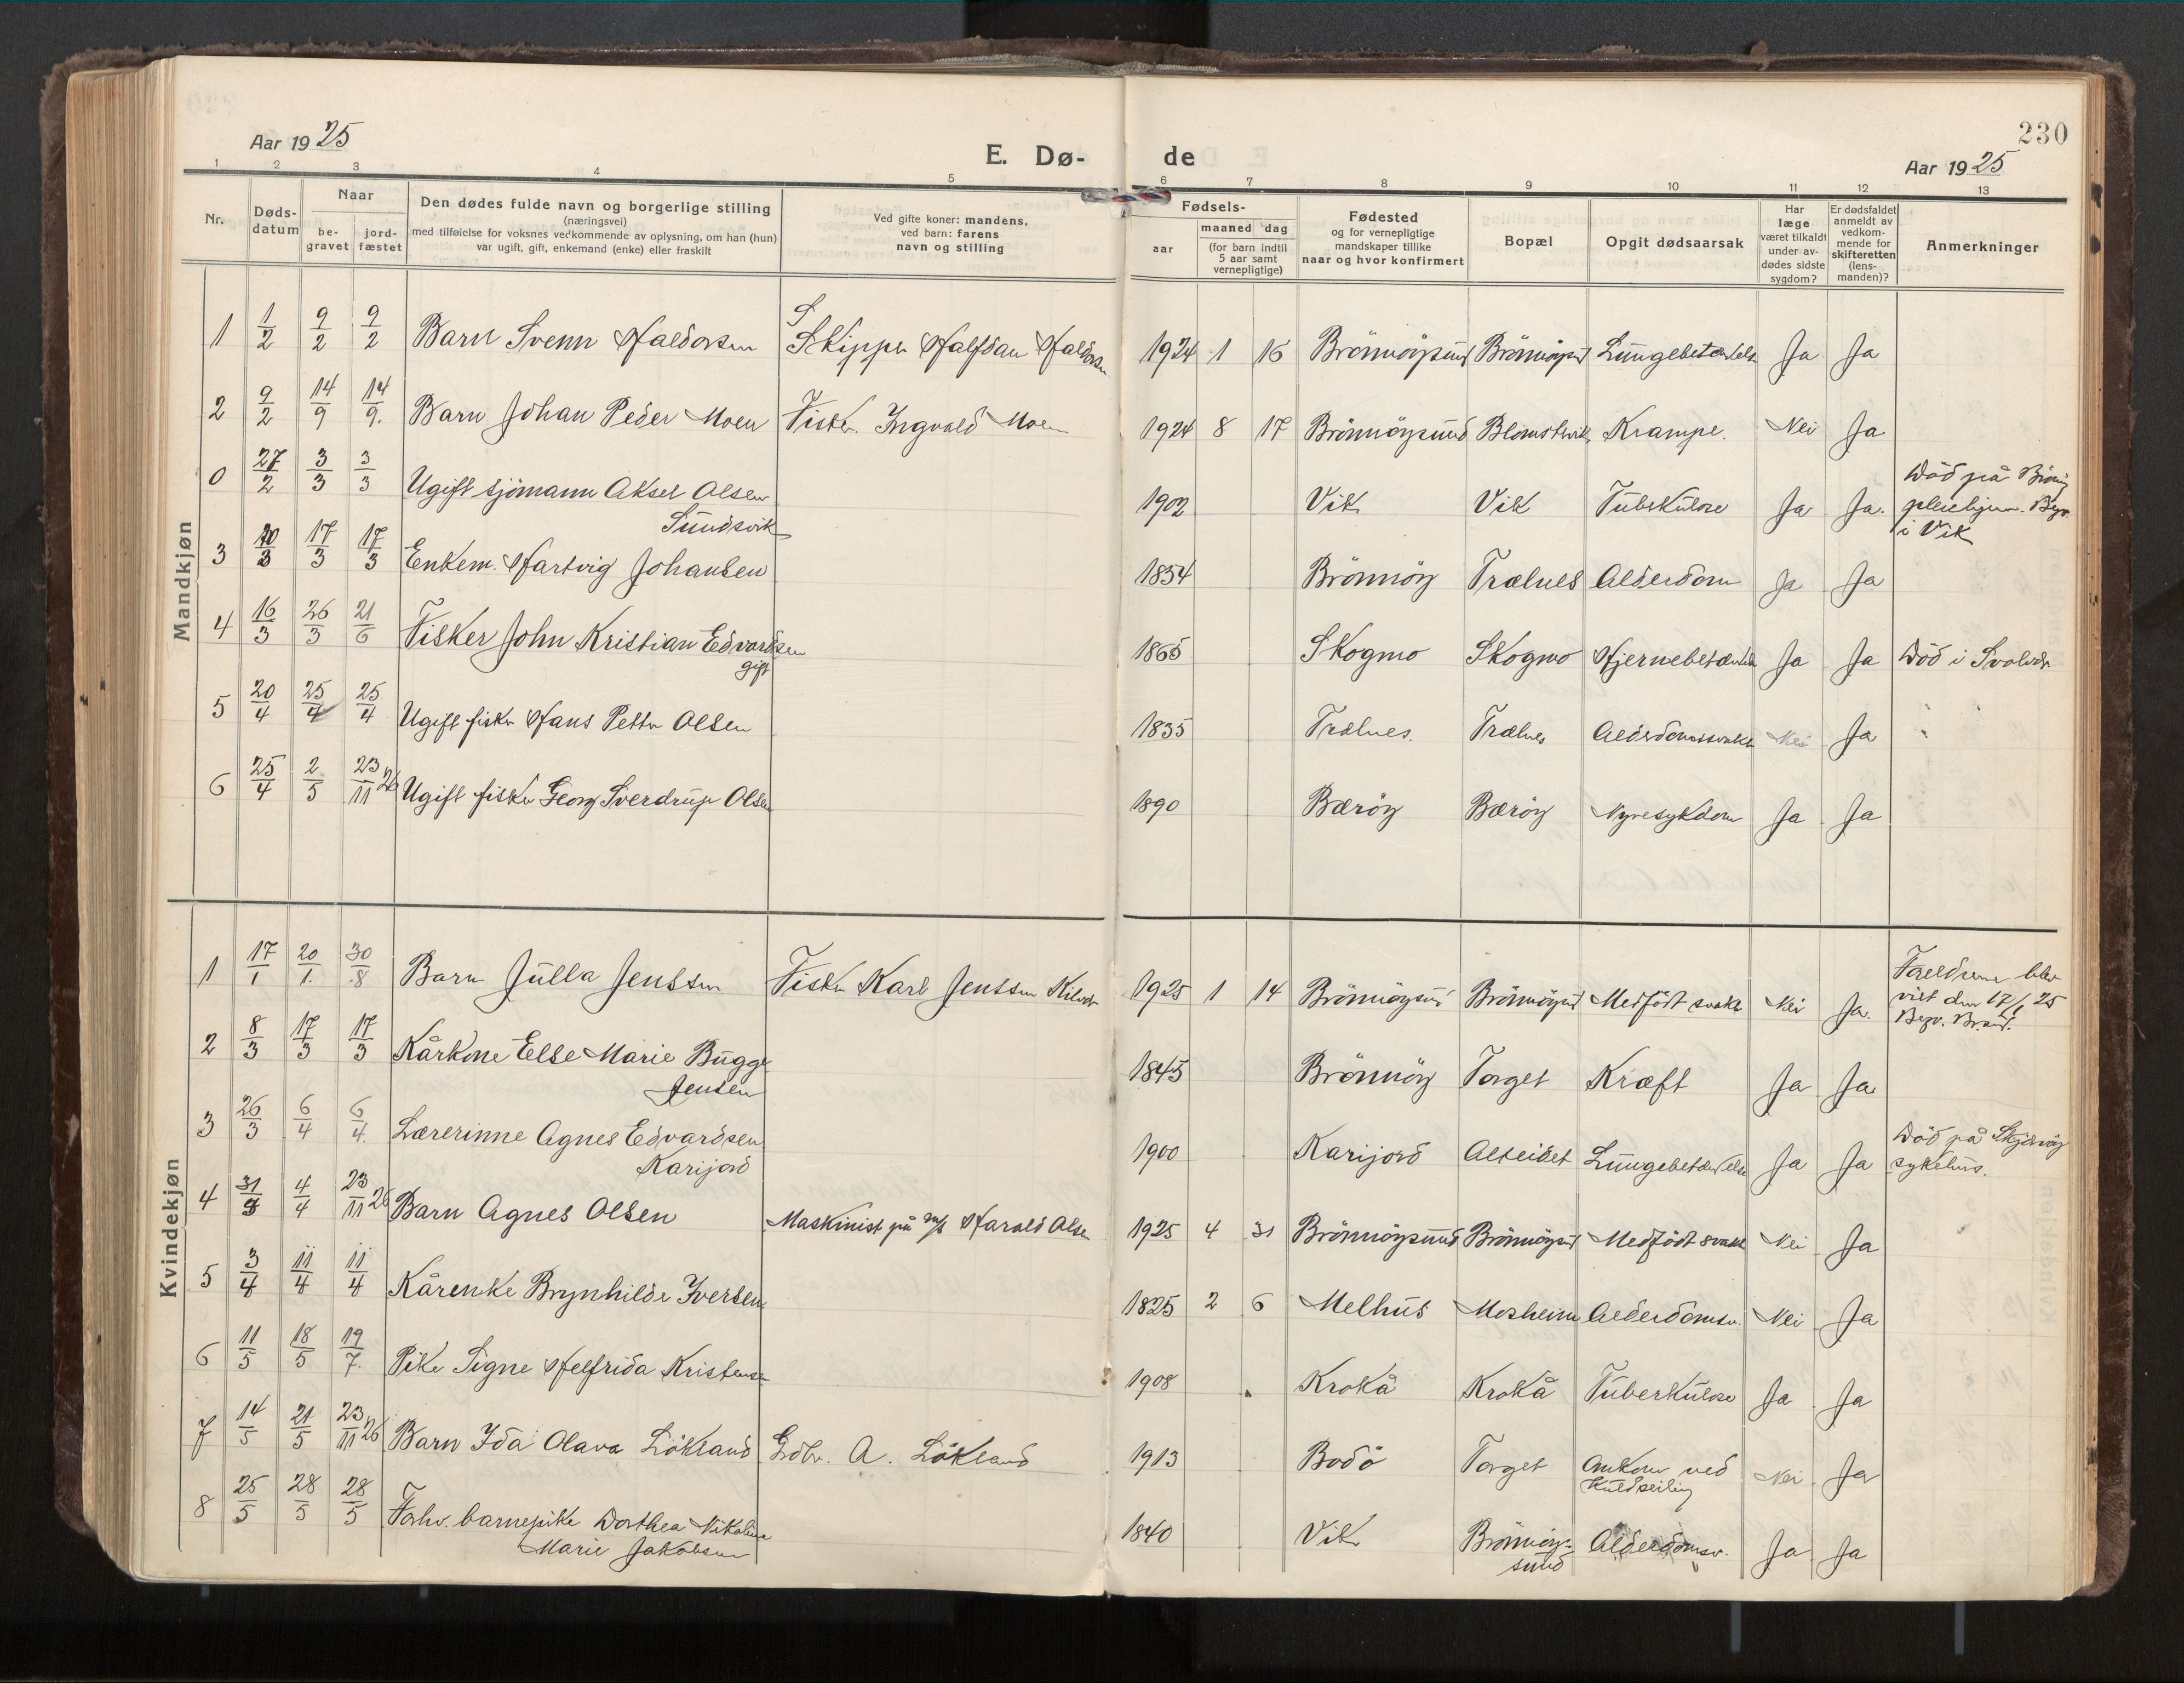 230
Aar 1925
E. Dø-
de
Aar 1925
1 2 3 4 5 6 7 8 9 10 11 12 13
Nr.
Døds-
datum
Naar
be-
gravet
jord-
fæstet
Den dødes fulde navn og borgerlige stilling
(næringsvei)
med tilføielse for voksnes vedkommende av oplysning, om han (hun)
var ugift, gift, enkemand (enke) eller fraskilt
Ved gifte koner: mandens,
ved barn: farens
navn og stilling
Fødsels-
aar
maaned dag
(for barn indtil
5 aar samt
vernepligtige)
Fødested
og for vernepligtige
mandskaper tillike
naar og hvor konfirmert
Bopæl
Opgit dødsaarsak
Har
læge
været tilkaldt
under av-
dødes sidste
sygdom?
Er dødsfaldet
anmeldt av
vedkom-
mende for
skifteretten
(lens-
manden)?
Anmerkninger
Mandkjøn
1 1/2 9/2 9/2 Barn Svenn Haldorsen Skipper Halfdan Haldorsen 1924 1 16 Brönnöysund Brönnöysund Lungebetændelse Ja Ja
2 9/2 14/9 14/9. Barn Johan Peder Moen Fisker Ingvald Moen 1924 8 17 Brönnöysund Blomstervik Krampe. Nei Ja
0 27/2 3/3 3/3 Ugift sjömann Aksel Olsen
Sundsvik
1902 Vik Vik Tuberkulose Ja Ja. Död på Brönnöy
pleiehjem. Begr.
i Vik
3 10/3 17/3 17/3 Enkem. Hartvig Johansen 1834 Brönnöy Trælnes Alderdom Ja Ja
4 16/3 26/3 21/6 Fisker John Kristian Edvardsen
gift
1865 Skogmo Skogmo Hjernebetændelse Ja Ja Död i Svolvær
5 20/4 25/4 25/4 Ugift fisker Hans Petter Olsen 1835 Trælnes. Trælnes Alderdomssvakh Nei Ja
6 25/4 2/5 23/11 26 Ugift fisker Georg Sverdrup Olsen 1890 Bæröy Bæröy Nyresykdom Ja Ja
Kvindekjøn
1 17/1 20/1. 30/8 Barn Julla Jenssen Fisker Karl Jenssen 1925 1 14 Brönnöysund Brönnöysund Medfödt svakh Nei Ja. Foreldrene blev
viet den 17/1 25
Begr. Br.sund.
2 8/3 17/3 17/3 Kårkone Else Marie Bugge
Jensen
1845 Brönnöy Torget Kræft Ja Ja
3 26/3 6/4 6/4. Lærerinne Agnes Edvardsen
Karijord
1900 Karijord Alseidet Lungebetændelse Ja Ja Död på Skjervöy
sykehus.
4 31/3 4/4 23/11 26 Barn Agnes Olsen Maskinist på m/s Harald Olsen 1925 4 31 Brönnöysund Brönnöysund Medfödt svakh Nei Ja
5 3/4 11/4 11/4 Kårenke Brynhilde Iversen 1825 2 6 Melhus Mosheim Alderdomssv. Nei Ja
6 11/5 18/5 19/7. Pike Signe Helfrida Kristensen 1908 Krokå Krokå Tuberkulose Ja Ja
7 14/5 21/5 23/11 26 Barn Ida Olava Lökland Gdbr. A. Lökland 1913 Bodö Torget Omkom ved
kuldseiling
Nei Ja
8 25/5 28/5 28/5 Forhv. barnepike Dorthea Nikoline
Marie Jakobsen
1840 Vik Brönnöy-
sund
Alderdomsv. Ja Ja